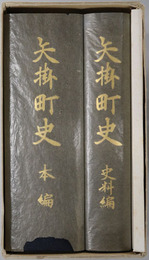 矢掛町史 本編
矢掛町史 史料編